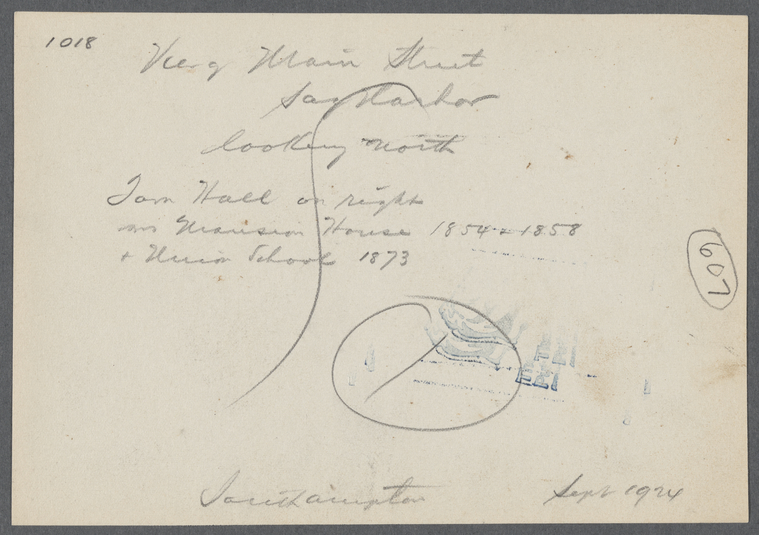 1018
View of Main Street
Sag Harbor
looking north
Town Hall on right
was Mansion House 1854 & 1858
& Union School 1873
607
Southampton Sept 1924